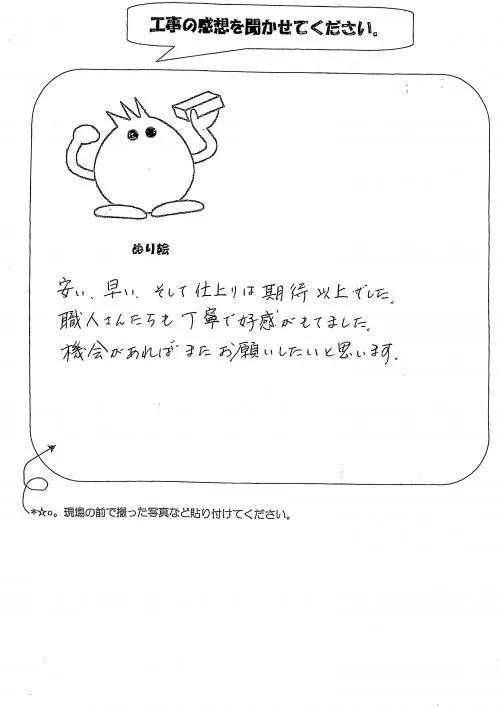 工事の感想を聞かせてください。
ぬり絵
安い、早い、そして仕上りは期待以上でした。
職人さんたちも丁寧で好感がもてました。
機会があればまたお願いしたいと思います。
*☆o。現場の前で撮った写真など貼り付けてください。